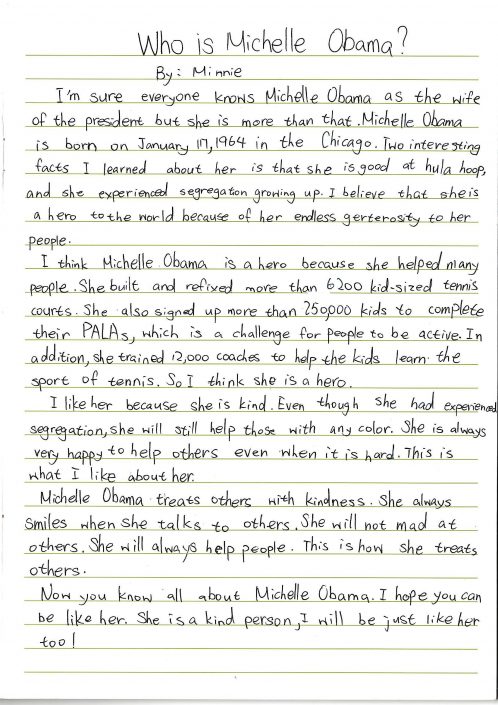 Who is Michelle Obama?
By: Minnie
I'm sure everyone knows Michelle Obama as the wife
of the president but she is more than that. Michelle Obama
is born on January 17, 1964 in the Chicago. Two interesting
facts I learned about her is that she is good at hula hoop,
and she experienced segregation growing up. I believe that she is
a hero to the world because of her endless gerterosity to her
people.
I think Michelle Obama is a hero because she helped many
people. She built and refixed more than 6200 kid-sized tennis
courts. She also signed up more than 250,000 kids to complete
their PALAs, which is a challenge for people to be active. In
addition, she trained 12,000 coaches to help the kids learn the
sport of tennis. So I think she is a hero.
I like her because she is kind. Even though she had experienced
segregation, she will still help those with any color. She is always
very happy to help others even when it is hard. This is
what I like about her.
Michelle Obama treats others with kindness. She always
smiles when she talks to others. She will not mad at
others. She will always help people. This is how she treats
others.
Now you know all about Michelle Obama. I hope you can
be like her. She is a kind person, I will be just like her
too!